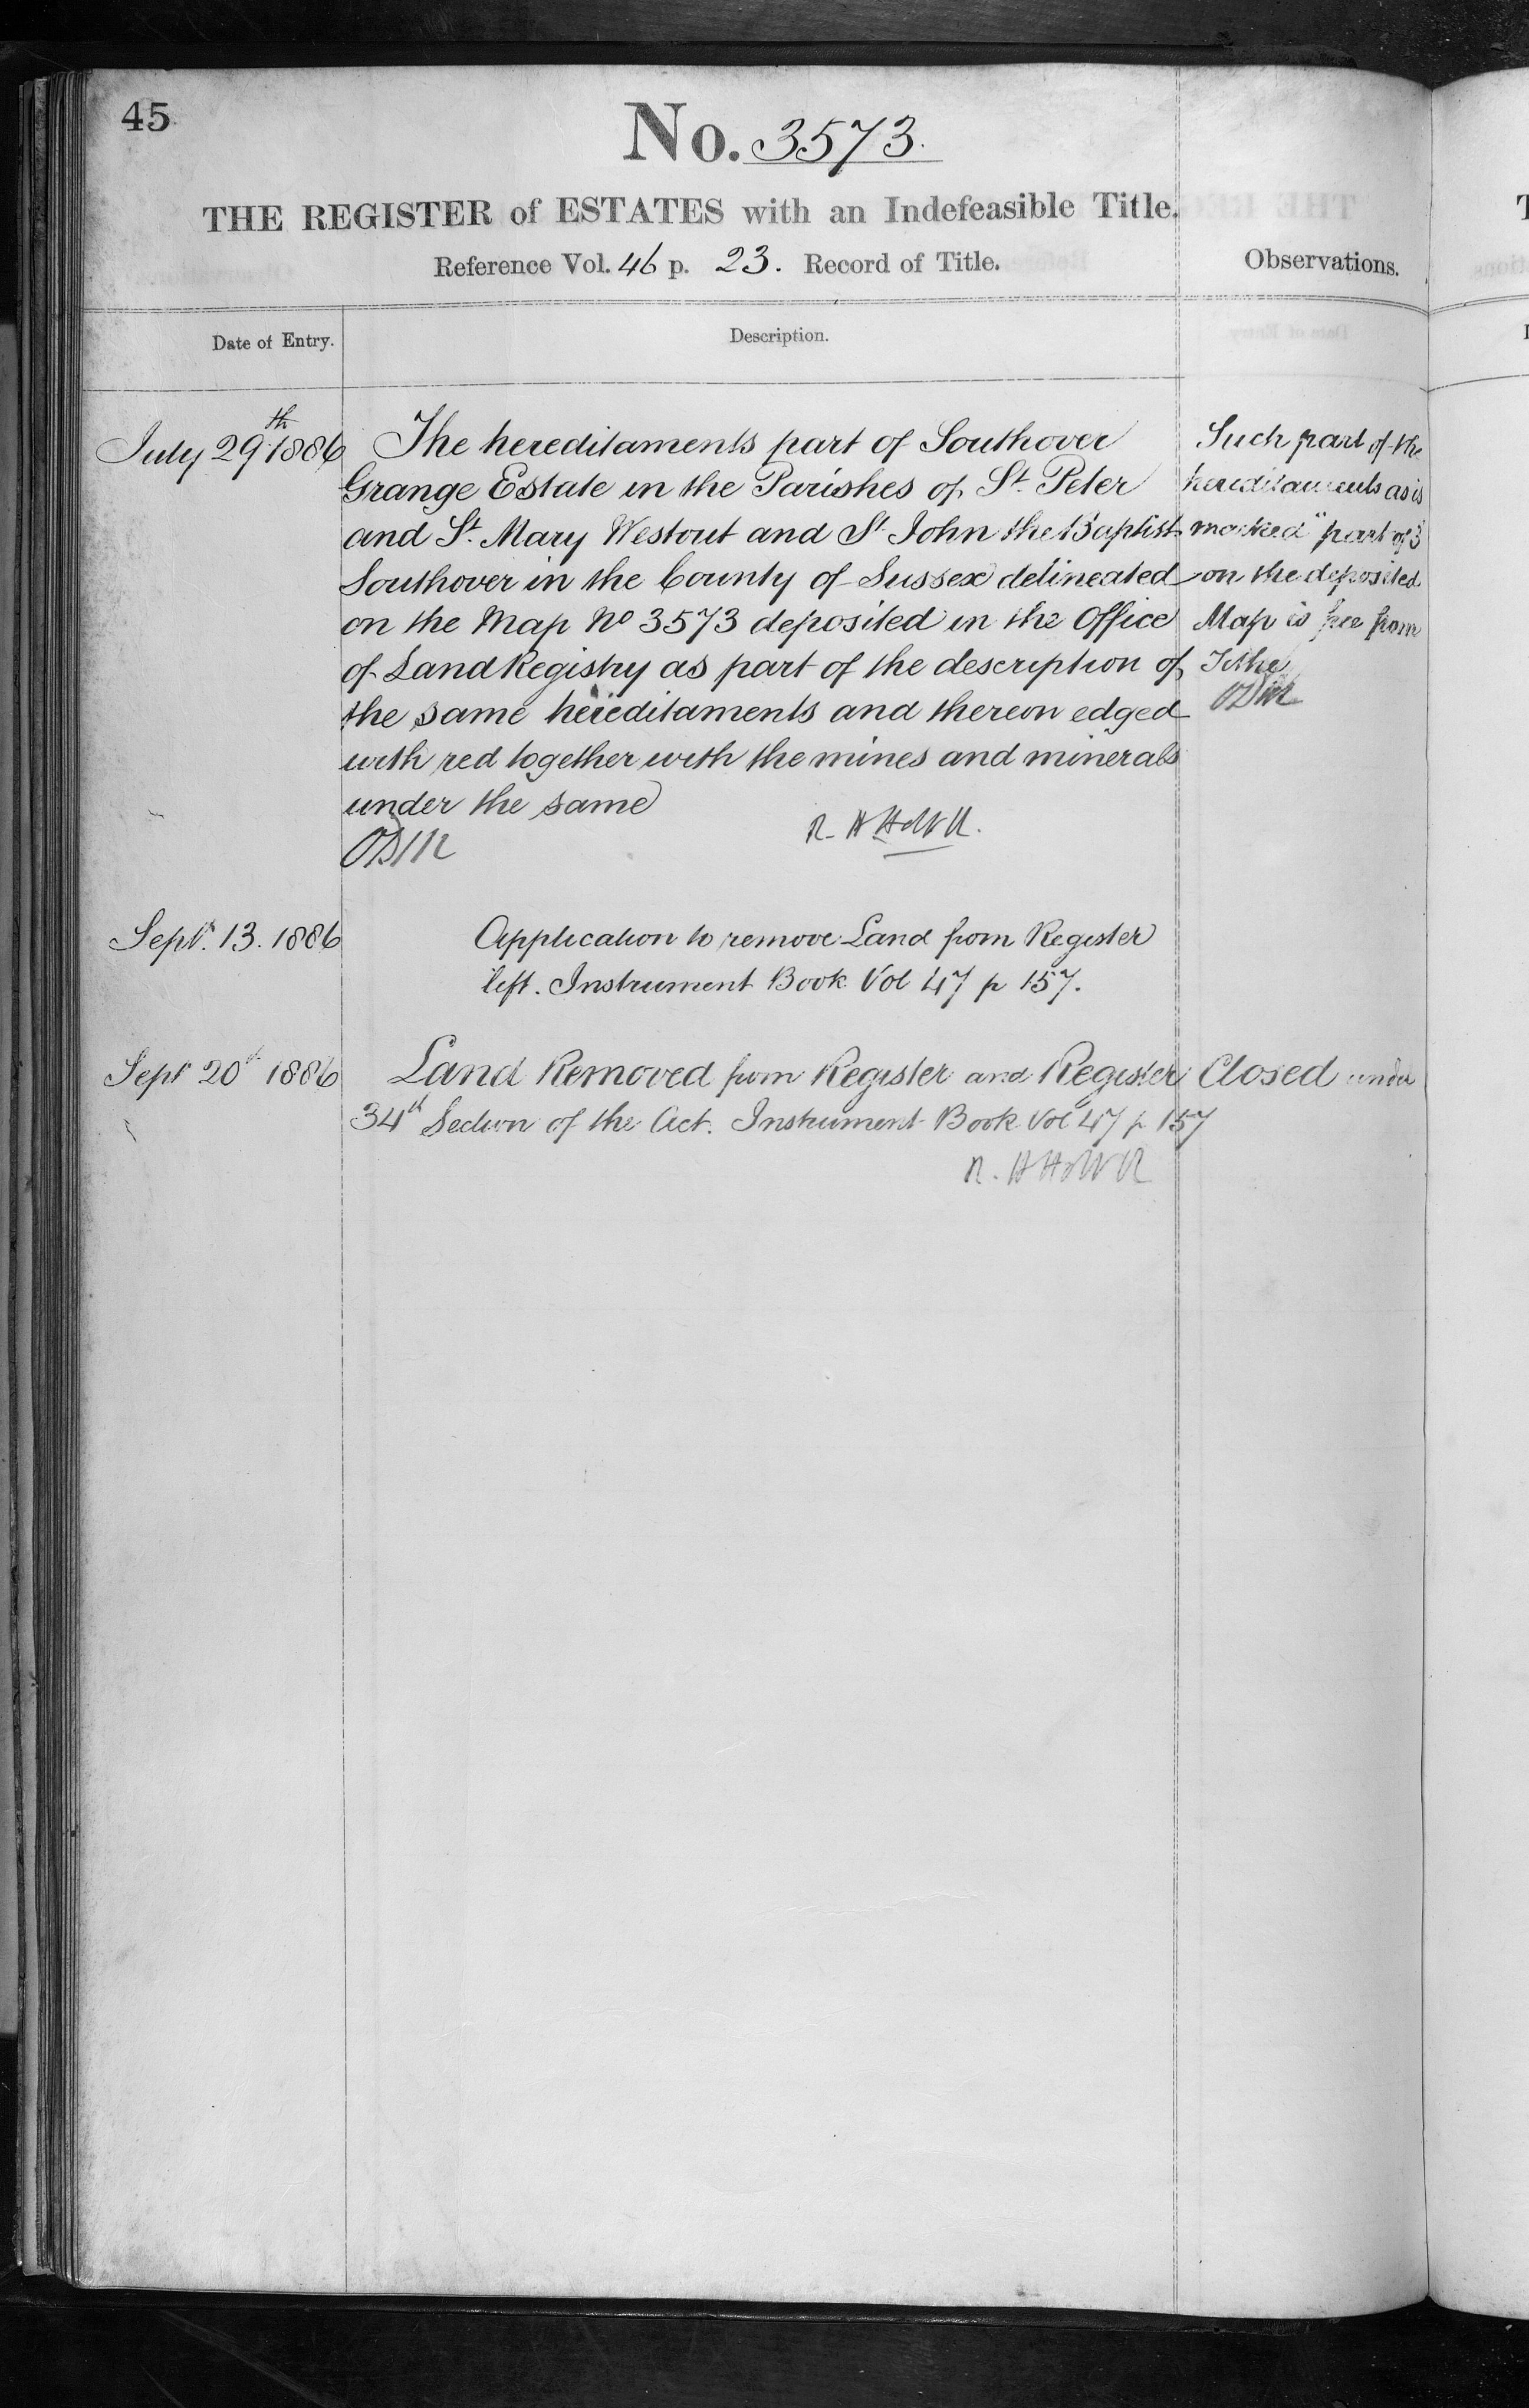 45
No. 3573.
THE REGISTER of ESTATES with an Indefeasible Title.
Reference Vol. 46 p. 23. Record of Title.
Observations.
Date of Entry.
Description.
July 29th 1886
The hereditaments part of Southover
Grange Estate in the Parishes of St. Peter
and St. Mary Westout and St John the Baptist
Southover in the County of Sussex delineated
on the Map No 3573 deposited in the Office
of Land Registry as part of the description of
the same hereditaments and thereon edged
with red together with the mines and minerals
under the same
Such part of the
hereditaments as is
marked "part of 3"
on the deposited
Map is free from
Tithe
Sept. 13. 1886
Application to remove Land from Register
left. Instrument Book Vol 47 p 157.
Sept 20th 1886
Land Removed from Register and Register Closed under
34th Section of the Act. Instrument Book Vol 47 p 157